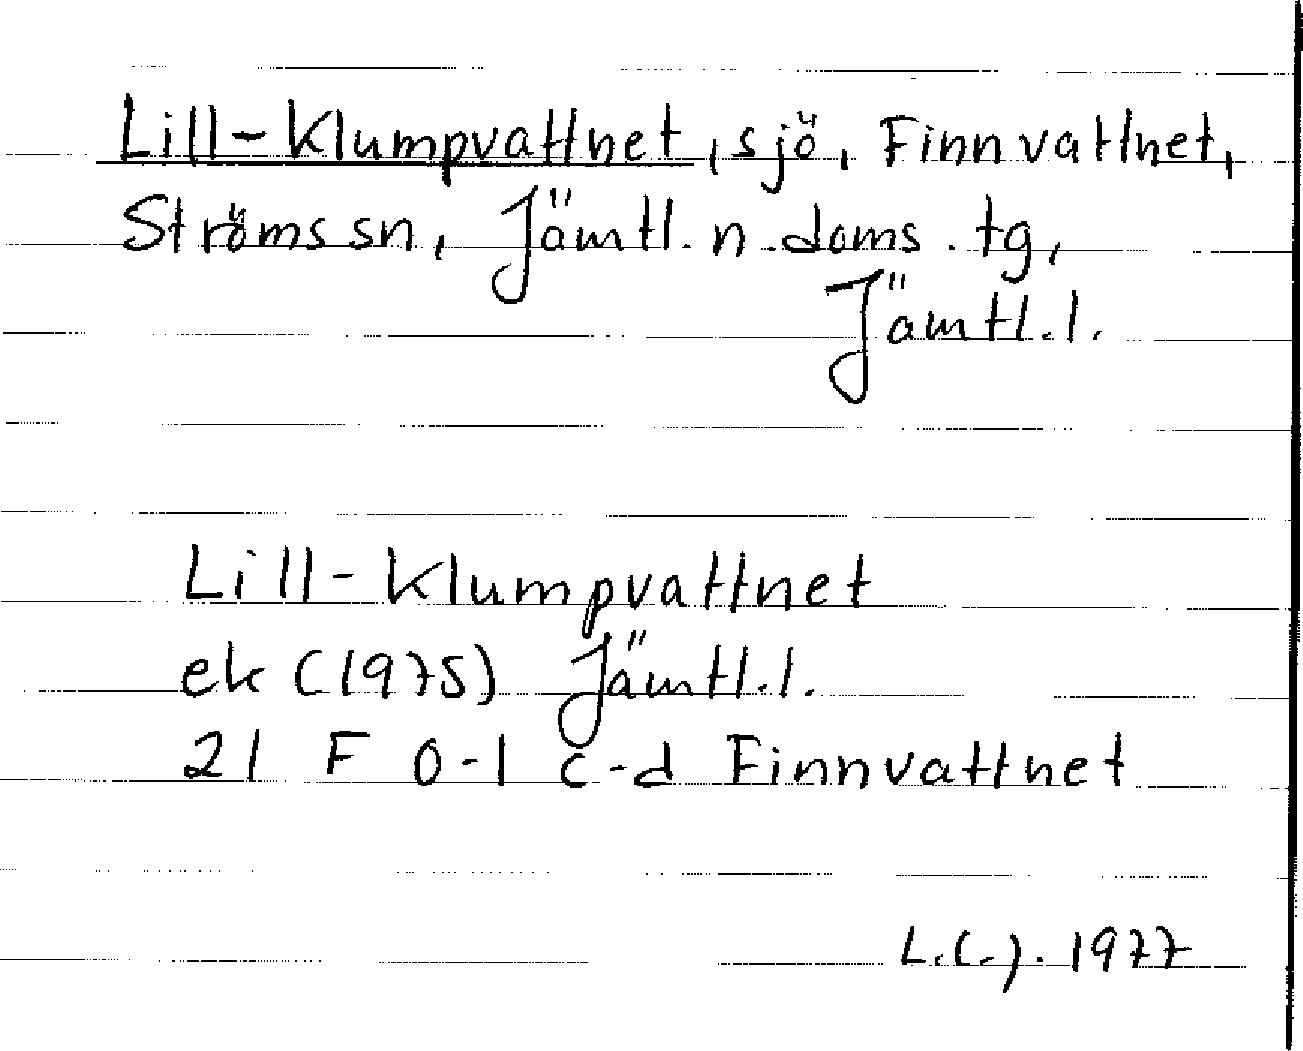 Lill-Klumpvattnet, sjö, Finnvattnet,
Ströms sn, Jämtl. n. doms. tg,
Jämtl. l.
Lill-Klumpvattnet
ek (1975) Jämtl. l.
21 F 0-1 c-d Finnvattnet
L.C.J. 1977